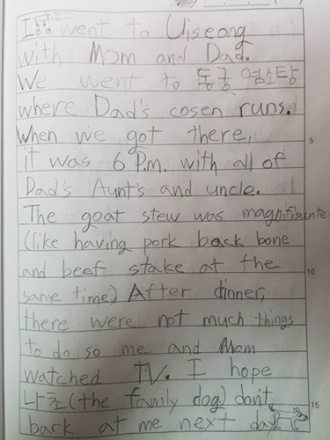 I went to Uiseong
with Mom and Dad.
We went to 동궁 염소탕
where Dad's cosen runs.
When we got there,
5
it was 6 P.m. with all of
Dad's Aunt's and uncle.
The goat stew was magnifisante
(like having pork back bone
and beef stake at the
10
same time) After dinner,
there were not much things
to do so me and Mom
watched TV. I hope
나조(the family dog) don't
15
bark at me next day